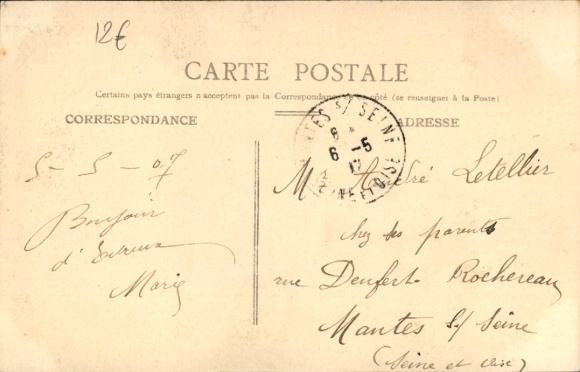 12€
CARTE POSTALE
Certains pays étrangers n'acceptent pas la Correspondance de ce côté (se renseigner à la Poste)
CORRESPONDANCE
ADRESSE
5 - 5 - 07
Bonjour
d'Evreux
Marie
M. André Letellier
chez ses parents
rue Denfert-Rochereau
Mantes s/ Seine
(Seine et Oise)
TES s/ SEINE
8
6 - 5
SEINE ET OISE